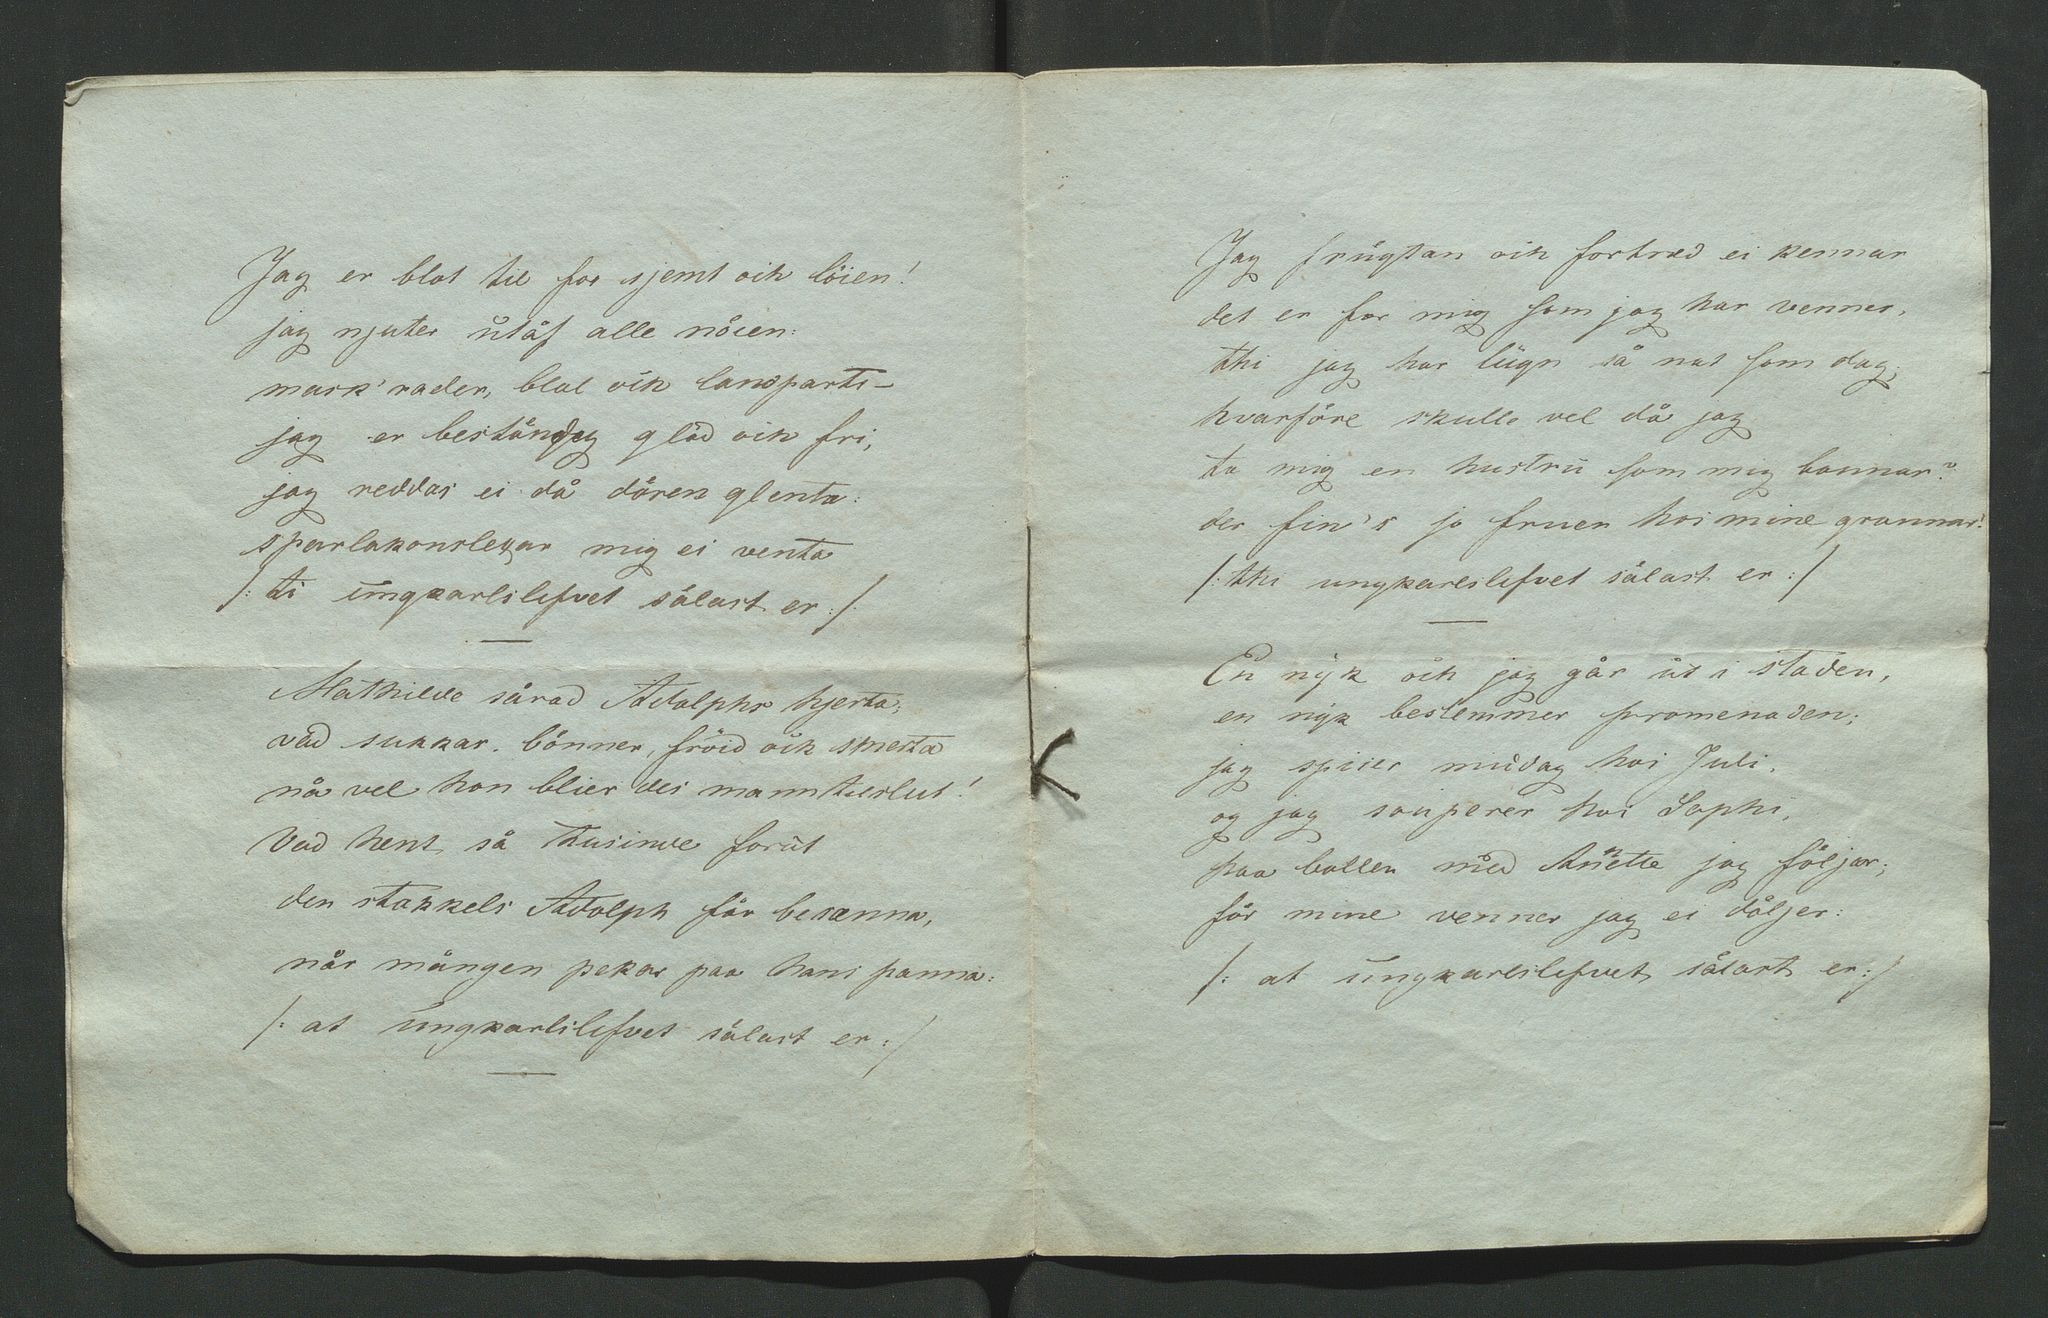 Jag er blot til for sjemt och löien!
jag njuter utåf alle nöien:
mask'rader, blat och landparti–
jag er beständig glad och fri,
jag reddas ei då dören glenta:
sparlakonslexar mig ei venta
/: ti ungkarlslefvet sälast er :/
Mathilde sårad Adolphs hjerta;
vad sukkar, bönner, fröid och smerta
nå vel hon blier des mann tilslut!
Vad hent så tusinde forut
den stakkels Adolph får besanna,
når mången pekar paa hans panna:
/: at ungkarlslefvet sälast er :/
Jag frügtan och fortred ei kennar
det er for mig som jag har venner,
thi jag har lugn så nat som dag;
hvarföre skulle vel då jag
ta mig en hustru som mig bannar?
der fin's jo fruer hos mine grannar!
/: thi ungkarlslefvet sälast er :/
En nyk och jag går ut i staden,
en nyk bestemmer promenaden;
jag spiser middag hos Juli,
og jag souperer hos Sophi,
paa ballen med Anette jag följar;
för mine venner jag ei döljer:
/: at ungkarlslefvet sälast er :/